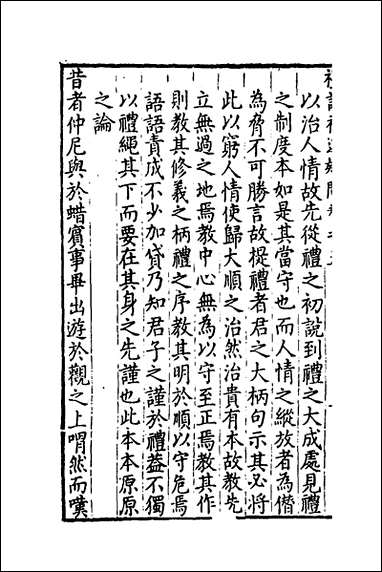 以治人情故先從禮之初說到禮之大成處見禮
之制度本如是其當守也而人情之縱放者為僣
為脅不可勝言故提禮者君之大柄句示其必將
此以窮人情使歸大順之治然治貴有本故教先
立無過之地焉教中心無為以守至正焉教其作
則教其修義之柄禮之序教其明於順以守危焉
語語責成不少加貸乃知君子之謹於禮葢不獨
以禮繩其下而要在其身之先謹也此本本原原
之論
昔者仲尼與於蜡賓事畢出游於觀之上喟然而嘆